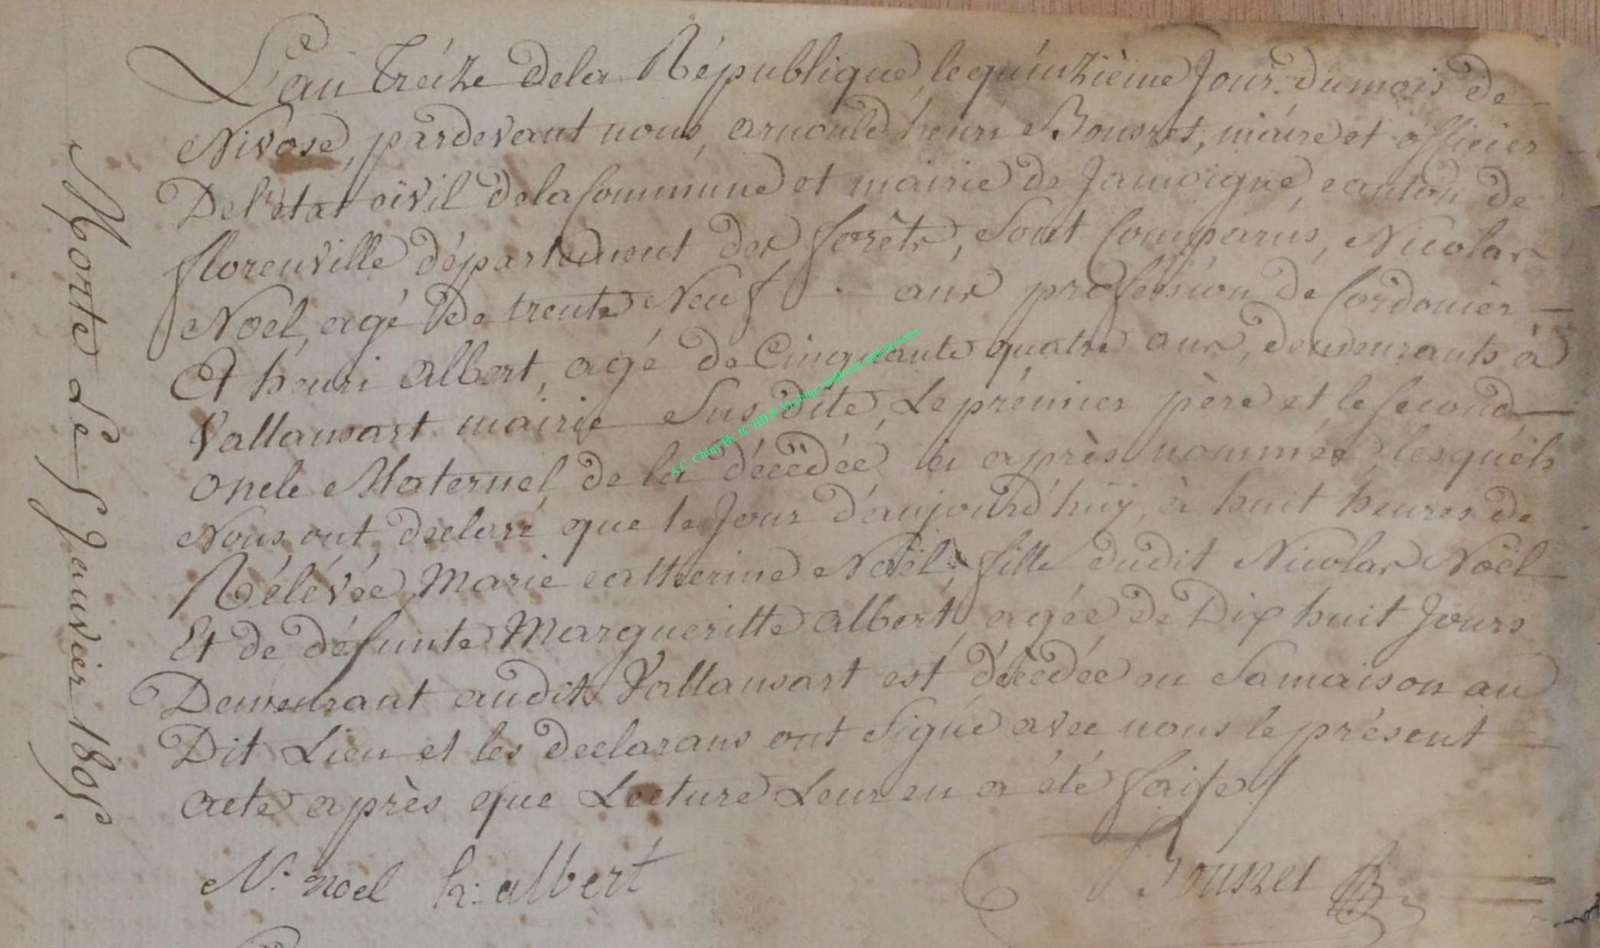 L'an treize de la République, le quinzième Jour du mois de
Nivose, pardevant nous, arnould henri Bousret, maire et officier
De l'état civil de la Commune et mairie de Jamoigne, canton de
florenville département des forêts, Sont Comparus, Nicolas
Noël, agé de trente Neuf ans profession de Cordonier
Et henri albert, agé de Cinquante quatre ans, demeurants à
Vallansart mairie Sus dite, Le prémier père et le second
oncle Maternel de la décédée ci après nommée lesquéls
Nous ont declaré que le Jour d'aujourd'huÿ, à huit heures de
Rélévée Marie catherine Noël, fille dudit Nicolas Noël
Et de défunte Margueritte albert, agée de Dix huit Jours
Demeurant audit Vallansart est décédée en Samaison au
Dit Lieu et les declarans ont Signé avec nous le présent
acte après que Lecture Leur en a été faite
N: noel h: albert Bousret
Morte Le 5 Janvier 1805.